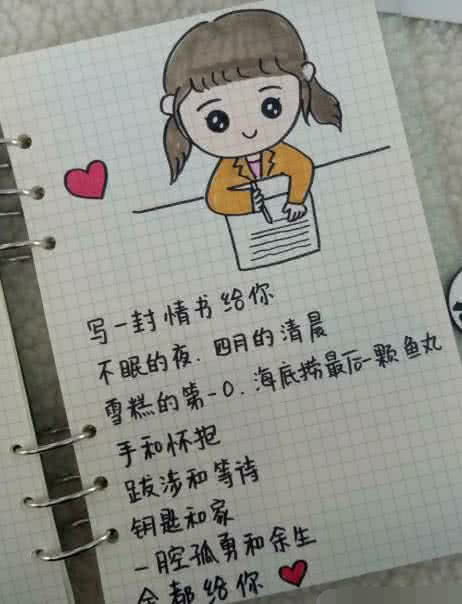 写一封情书给你
不眠的夜.四月的清晨
雪糕的第一口.海底捞最后一颗鱼丸
手和怀抱
跋涉和等待
钥匙和家
一腔孤勇和余生
全都给你